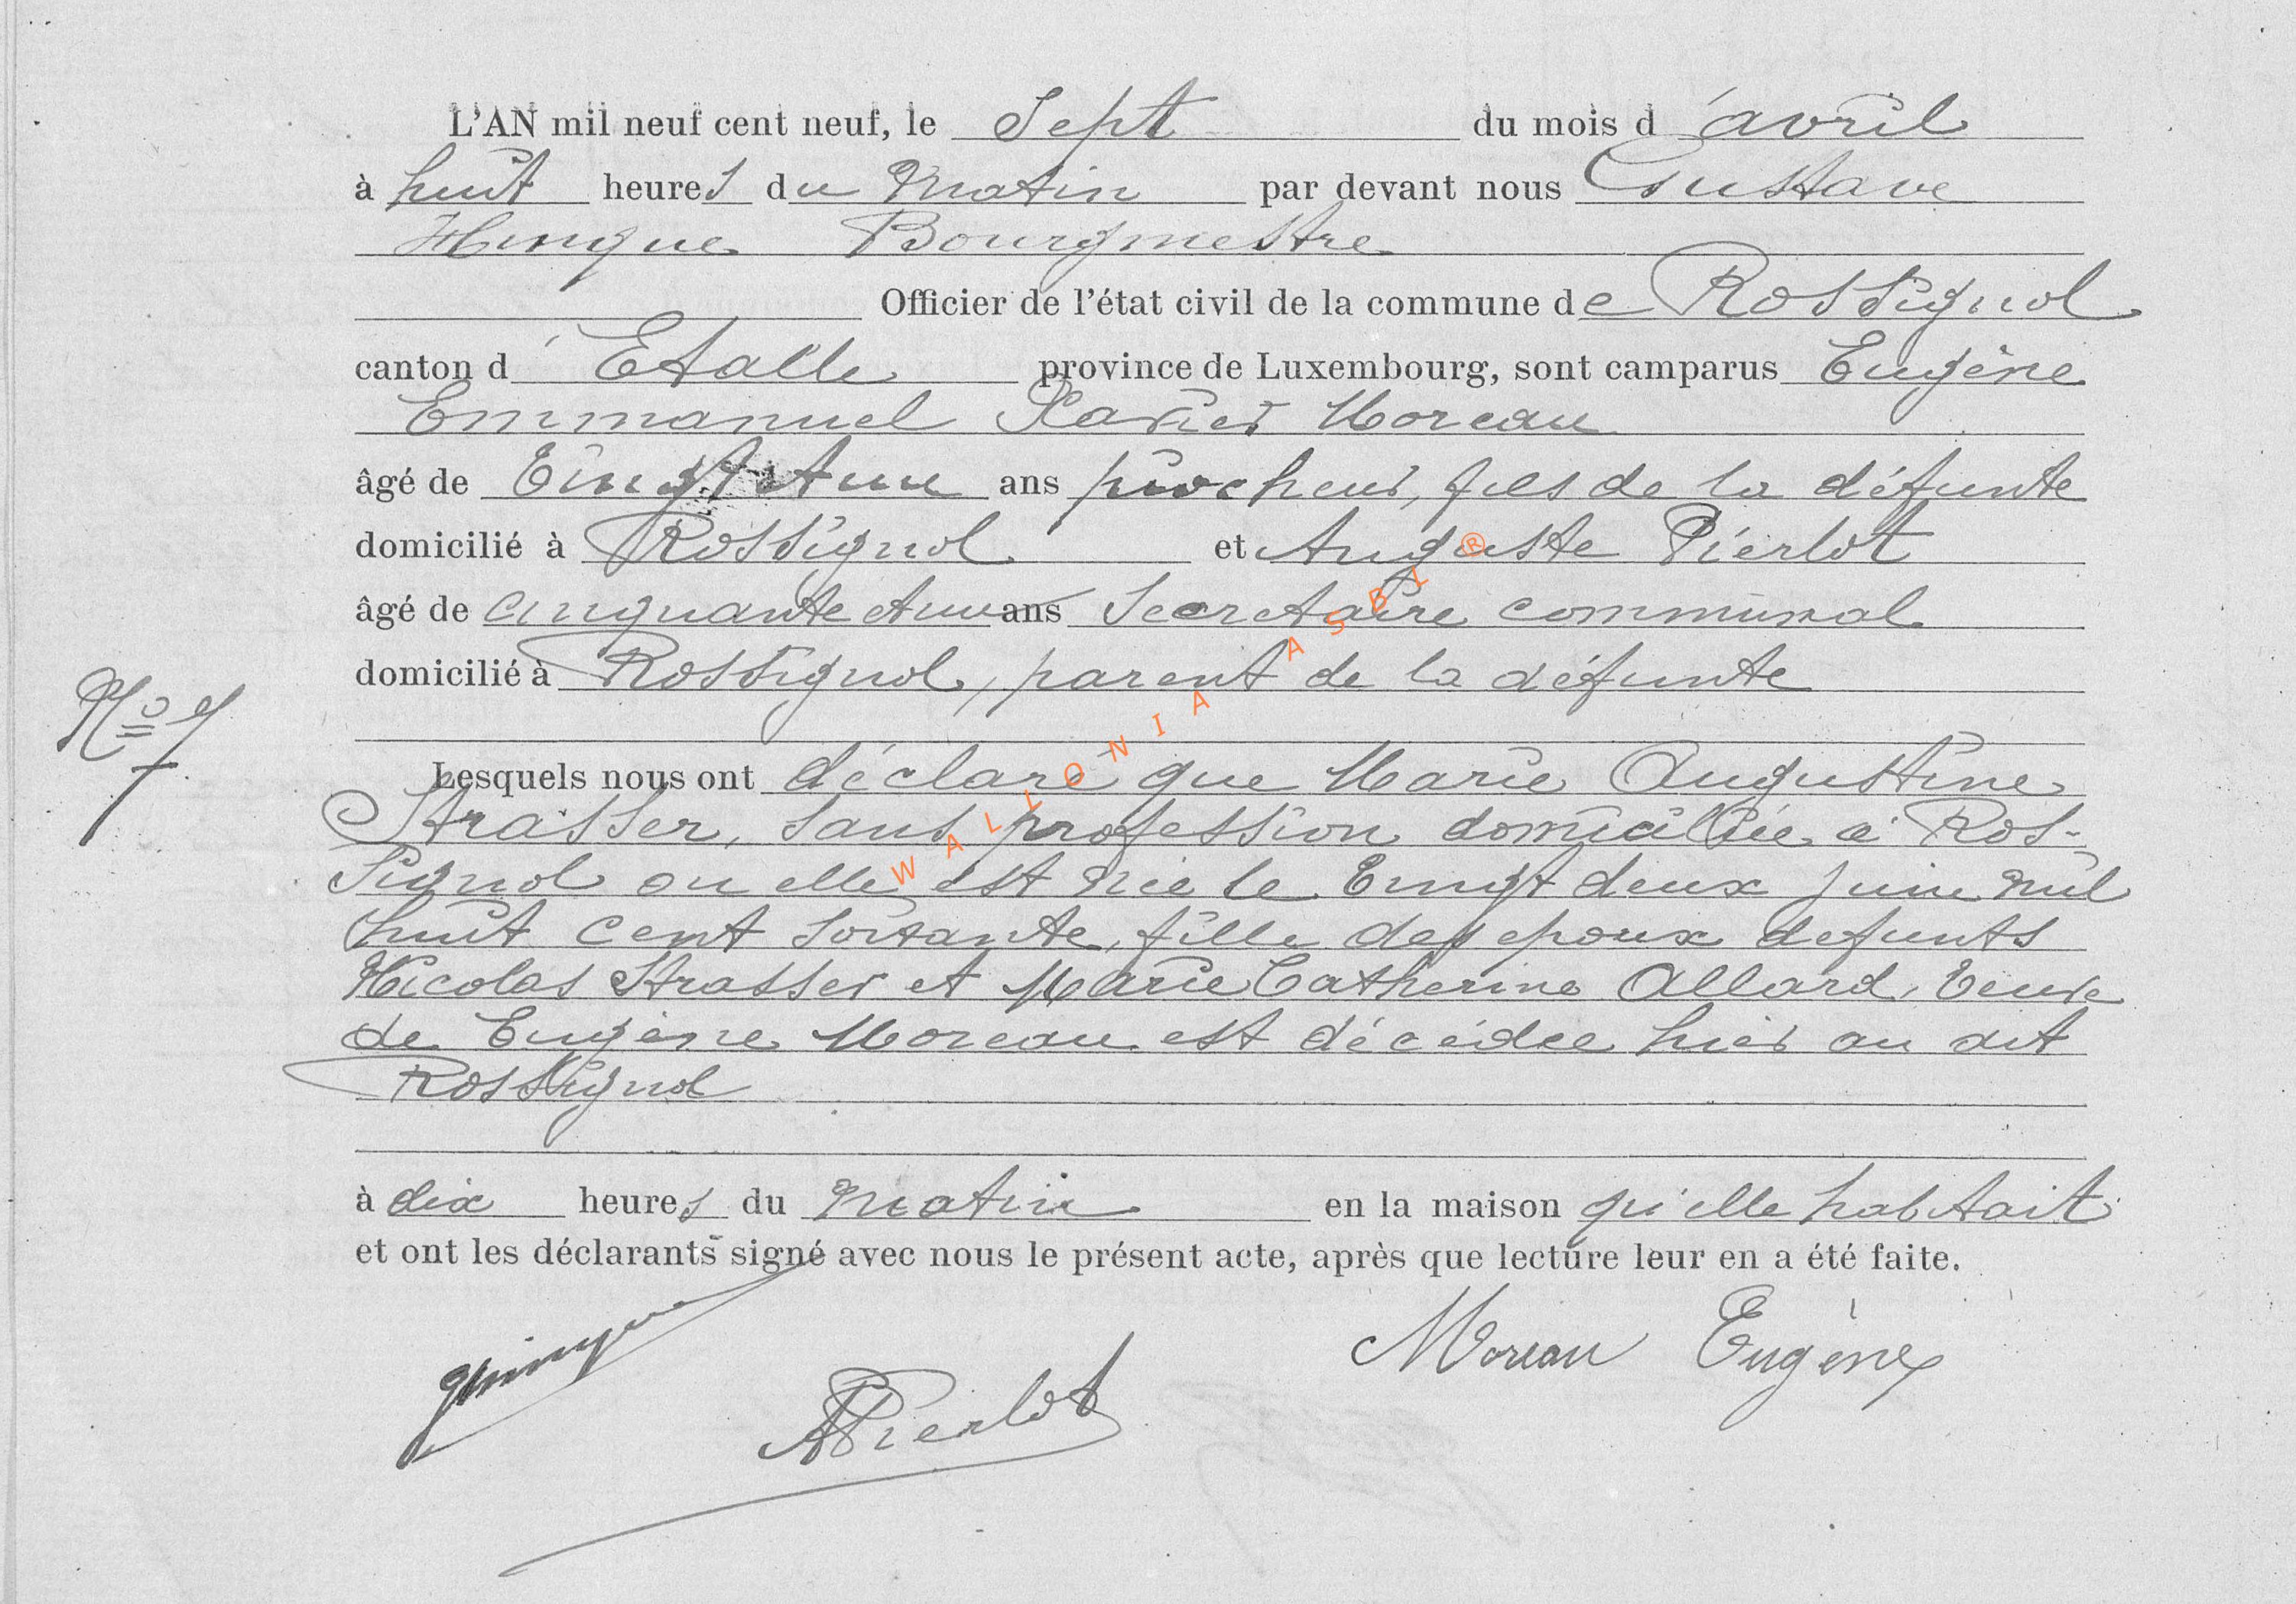 L'AN mil neuf cent neuf, le Sept du mois d'avril
à huit heures du Matin par devant nous Gustave
Hinque Bourgmestre
Officier de l'état civil de la commune de Rossignol
canton d'Etalle province de Luxembourg, sont camparus Eugène
Emmanuel Xavier Moreau
âgé de Vingt et un ans piocheur, fils de la défunte
domicilié à Rossignol et Auguste Pierlot
âgé de cinquante et un ans Secretaire communal
domicilié à Rossignol, parent de la défunte
N° 7
Lesquels nous ont déclaré que Marie Augustine
Strasser, sans profession domiciliée à Ros-
signol ou elle est née le Vingt deux juin mil
huit cent soixante, fille des epoux defunts
Nicolas Strasser et Marie Catherine Allard, Veuve
de Eugène Moreau est décédée hier au dit
Rossignol
à dix heures du Matin en la maison qu'elle habitait
et ont les déclarants signé avec nous le présent acte, après que lecture leur en a été faite.
Moreau Eugène
APierlot
WALLONIA ASBL ®